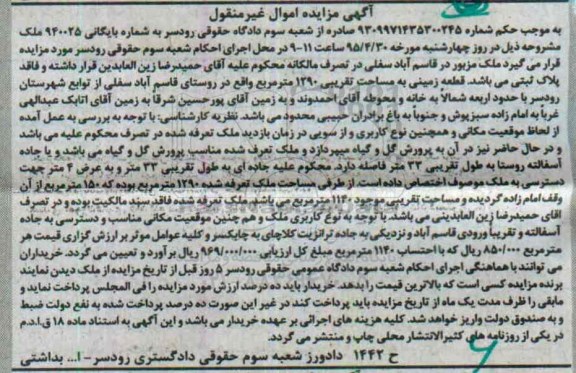 آگهی مزایده اموال غیرمنقول
به موجب حکم شماره ۹۳۰۹۹۷۱۴۳۵۳۰۰۲۴۵ صادره از شعبه سوم دادگاه حقوقی رودسر به شماره بایگانی ۹۴۰۰۲۵ ملک
مشروحه ذیل در روز چهارشنبه مورخه ۹۵/۴/۳۰ ساعت ۱۱-۹ در محل اجرای احکام شعبه سوم حقوقی رودسر مورد مزایده
قرار می گیرد ملک مزبور در قاسم آباد سفلی در تصرف مالکانه محکوم علیه آقای حمیدرضا زین العابدین قرار داشته و فاقد
پلاک ثبتی می باشد. قطعه زمینی به مساحت تقریبی ۱۲۹۰ مترمربع واقع در روستای قاسم آباد سفلی از توابع شهرستان
رودسر با حدود اربعه شمالاً به خانه و محوطه آقای احمدوند و به زمین آقای پورحسین شرقاً به زمین آقای اتابک عبدالهی
غرباً به امام زاده سبزپوش و جنوباً به باغ برادران حبیبی محدود می باشد. نظریه کارشناسی: با توجه به بررسی به عمل آمده
از لحاظ موقعیت مکانی و همچنین نوع کاربری و از سویی در زمان بازدید ملک تعرفه شده در تصرف محکوم علیه می باشد
و در حال حاضر نیز در آن به پرورش گل و گیاه میپردازد و ملک تعرفه شده مناسب پرورش گل و گیاه می باشد و با جاده
آسفالته روستا به طول تقریبی ۳۳ متر فاصله دارد. محکوم علیه جاده ای به طول تقریبی ۳۳ متر و به عرض ۴ متر جهت
دسترسی به ملک موصوف اختصاص داده است از طرفی مساحت ملک تعرفه شده ۱۲۹۰ مترمربع بوده که ۱۵۰ مترمربع از آن
وقف امام زاده گردیده و مساحت تقریبی موجود ۱۱۴۰ مترمربع می باشد. ملک تعرفه شده فاقد سند مالکیت بوده و در تصرف
اقای حمیدرضا زین العابدینی می باشد. با توجه به نوع کاربری ملک و هم چنین موقعیت مکانی مناسب و دسترسی به جاده
آسفالته و تقریباً ورودی قاسم آباد و نزدیکی به جاده ترانزیت کلاچای به چابکسر و کلیه عوامل موثر بر ارزش گزاری قیمت هر
مترمربع ۸۵۰/۰۰۰ ریال که با احتساب ۱۱۴۰ مترمربع مبلغ کل ارزیابی ۹۶۹/۰۰۰/۰۰۰ ریال برآورد و تعیین می گردد. خریداران
می توانند با هماهنگی اجرای احکام شعبه سوم دادگاه عمومی حقوقی رودسر ۵ روز قبل از تاریخ مزایده از ملک دیدن نمایند
برنده مزایده کسی است که بالاترین قیمت را بدهد. خریدار باید ده درصد ارزش مورد مزایده را فی المجلس پرداخت نماید و
مابقی را ظرف مدت یک ماه از تاریخ مزایده باید پرداخت کند در غیر این صورت ده درصد پرداخت شده به نفع دولت ضبط
و به صندوق دولت واریز خواهد شد. کلیه هزینه های اجرائی بر عهده خریدار می باشد و این آگهی به استناد ماده ۱۸ ق.ا.د.م
در یکی از روزنامه های کثیرالانتشار محلی چاپ و منتشر می گردد.
ح ۱۴۴۲ دادورز شعبه سوم حقوقی دادگستری رودسر - ا... بداشتی